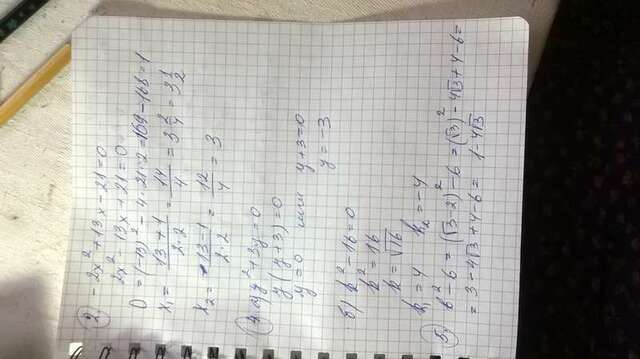 2. -2x²+13x-21=0
2x² 13x+21=0
D=(-13)²-4·21·2=169-168=1
x₁= (13+1)/(2·2) = 14/4 = 3 2/4 = 3 1/2
x₂= (13-1)/(2·2) = 12/4 = 3
4. а) y²+3y=0
y(y+3)=0
y=0 или y+3=0
y=-3
б) k²-16=0
k²=16
k=√16
k₁=4 k₂=-4
5. b²-6=(√3-2)²-6=(√3)²-4√3+4-6=
=3-4√3+4-6=1-4√3